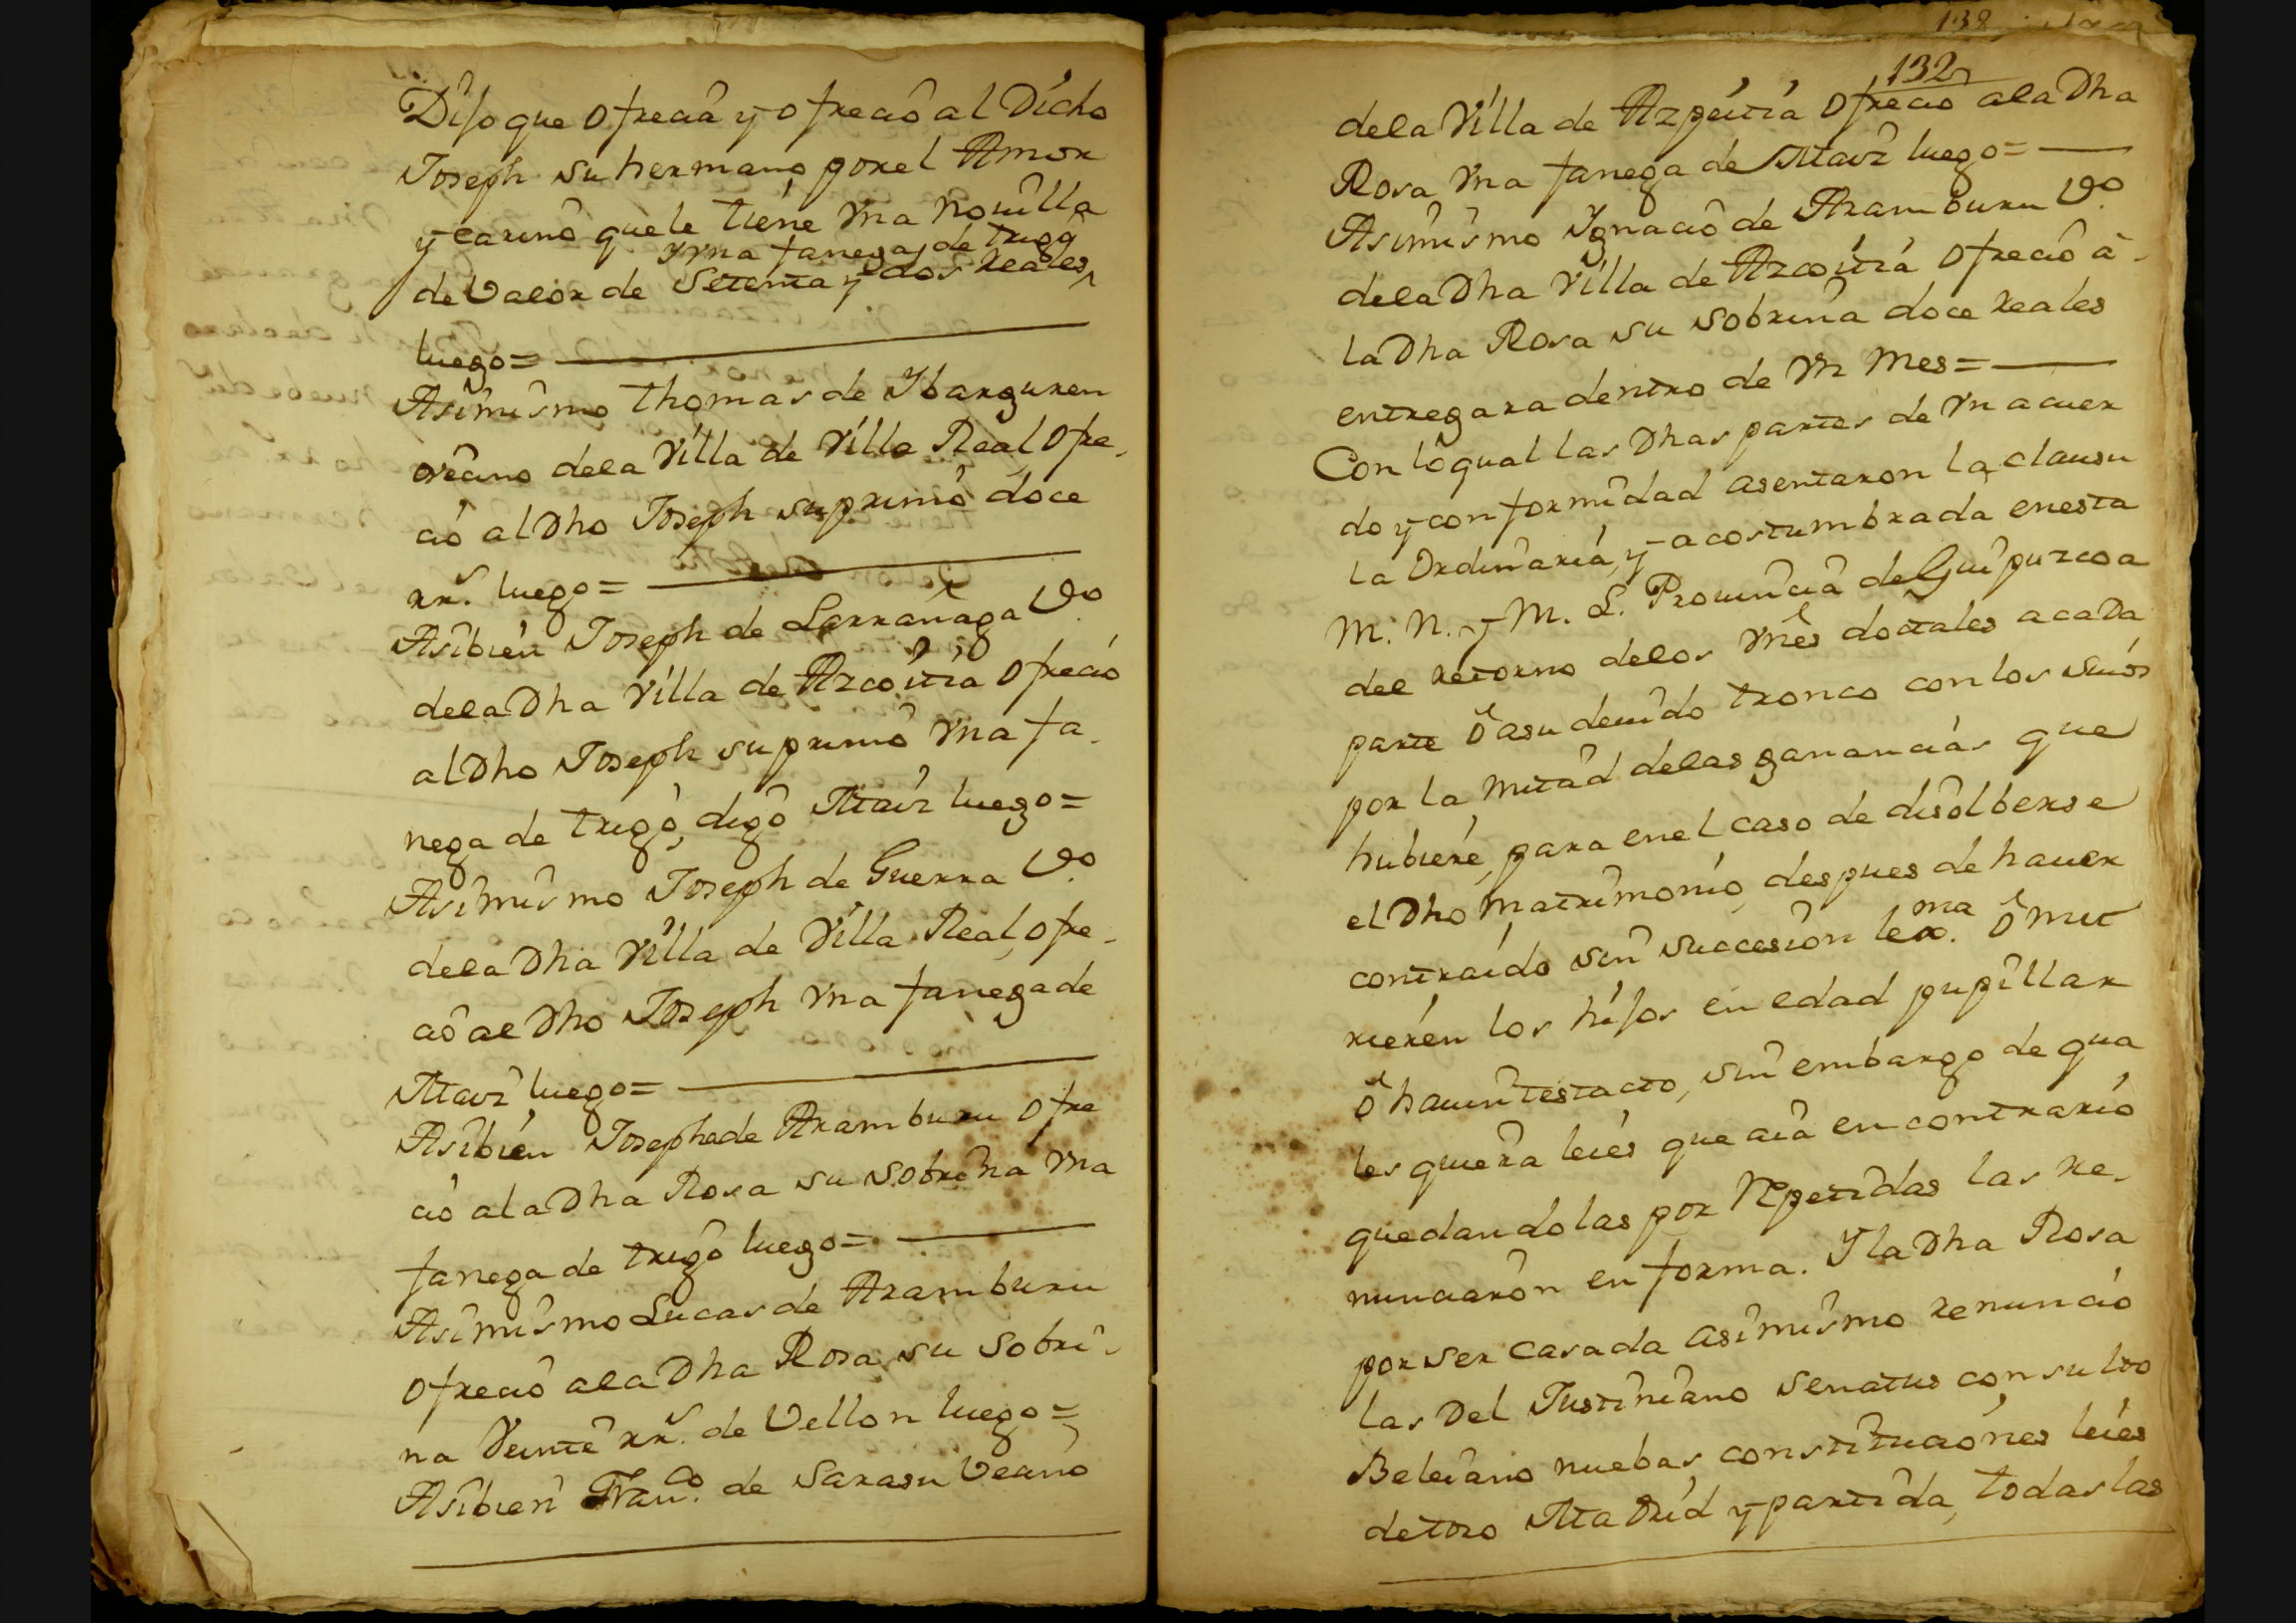 Dijo que ofrecia y ofreciò al Dicho
Joseph su hermano por el Amor
y cariño que le tiene vna Nouilla
y vna fanega de trigo
de Valor de Setenta y dos reales
luego=
Asimismo Thomas de Ybarguren
vecino dela Villa de Villa Real ofre-
ciò al Dho Joseph su primo doce
rrs. luego=
Asibien Joseph de Larrañaga Vo.
dela Dha Villa de Azcoitia ofrecio
al Dho Joseph su primo vna fa-
nega de trigo, digo Maiz luego=
Asimismo Joseph de Guerra Vo.
dela Dha Villa de Villa Real, ofre-
ciò al Dho Joseph vna fanega de
Maiz luego=
Asibien Josepha de Aramburu ofre
ciò ala Dha Rosa su sobrina vna
fanega de trigo luego=
Asimismo Lucas de Aramburu
ofreciò ala Dha Rosa su sobri-
na Veinte rrs. de Vellon luego=
Asibien Franco. de Sarasu Vecino
132
132
dela Villa de Azpeitia ofreciò ala Dha
Rosa vna fanega de Maiz luego=
Asimismo Ygnacio de Aramburu Vo.
dela Dha Villa de Azcoitia ofreciò à-
la Dha Rosa su sobrina doce reales
entregara dentro de vn mes=
Con loqual las Dhas partes de vn acuer
do y conformidad asentaron la clausu
la Ordinaria, y acostumbrada enesta
M. N. y M. L. Prouincia de Guipuzcoa
del retorno delos vnes dotales acada
parte ò asu deuido tronco con los suios
por la mitad delas ganancias que
hubiere, para enel caso de disolberse
el Dho matrimonio, despues de hauer
contraido sin succesion lexma. ò mu
rieren los hijos en edad pupillar
ò hauintestacto, sin embargo de qua
les quiera leies que aia en contrario
quedandolas por Repetidas las re-
nunciaron en forma. Y la Dha Rosa
por ser casada asimismo renunciò
las Del Justiniano Senatus consulto
Beleiano nuebas constituciones leies
de toro Madrid y partida, todas las